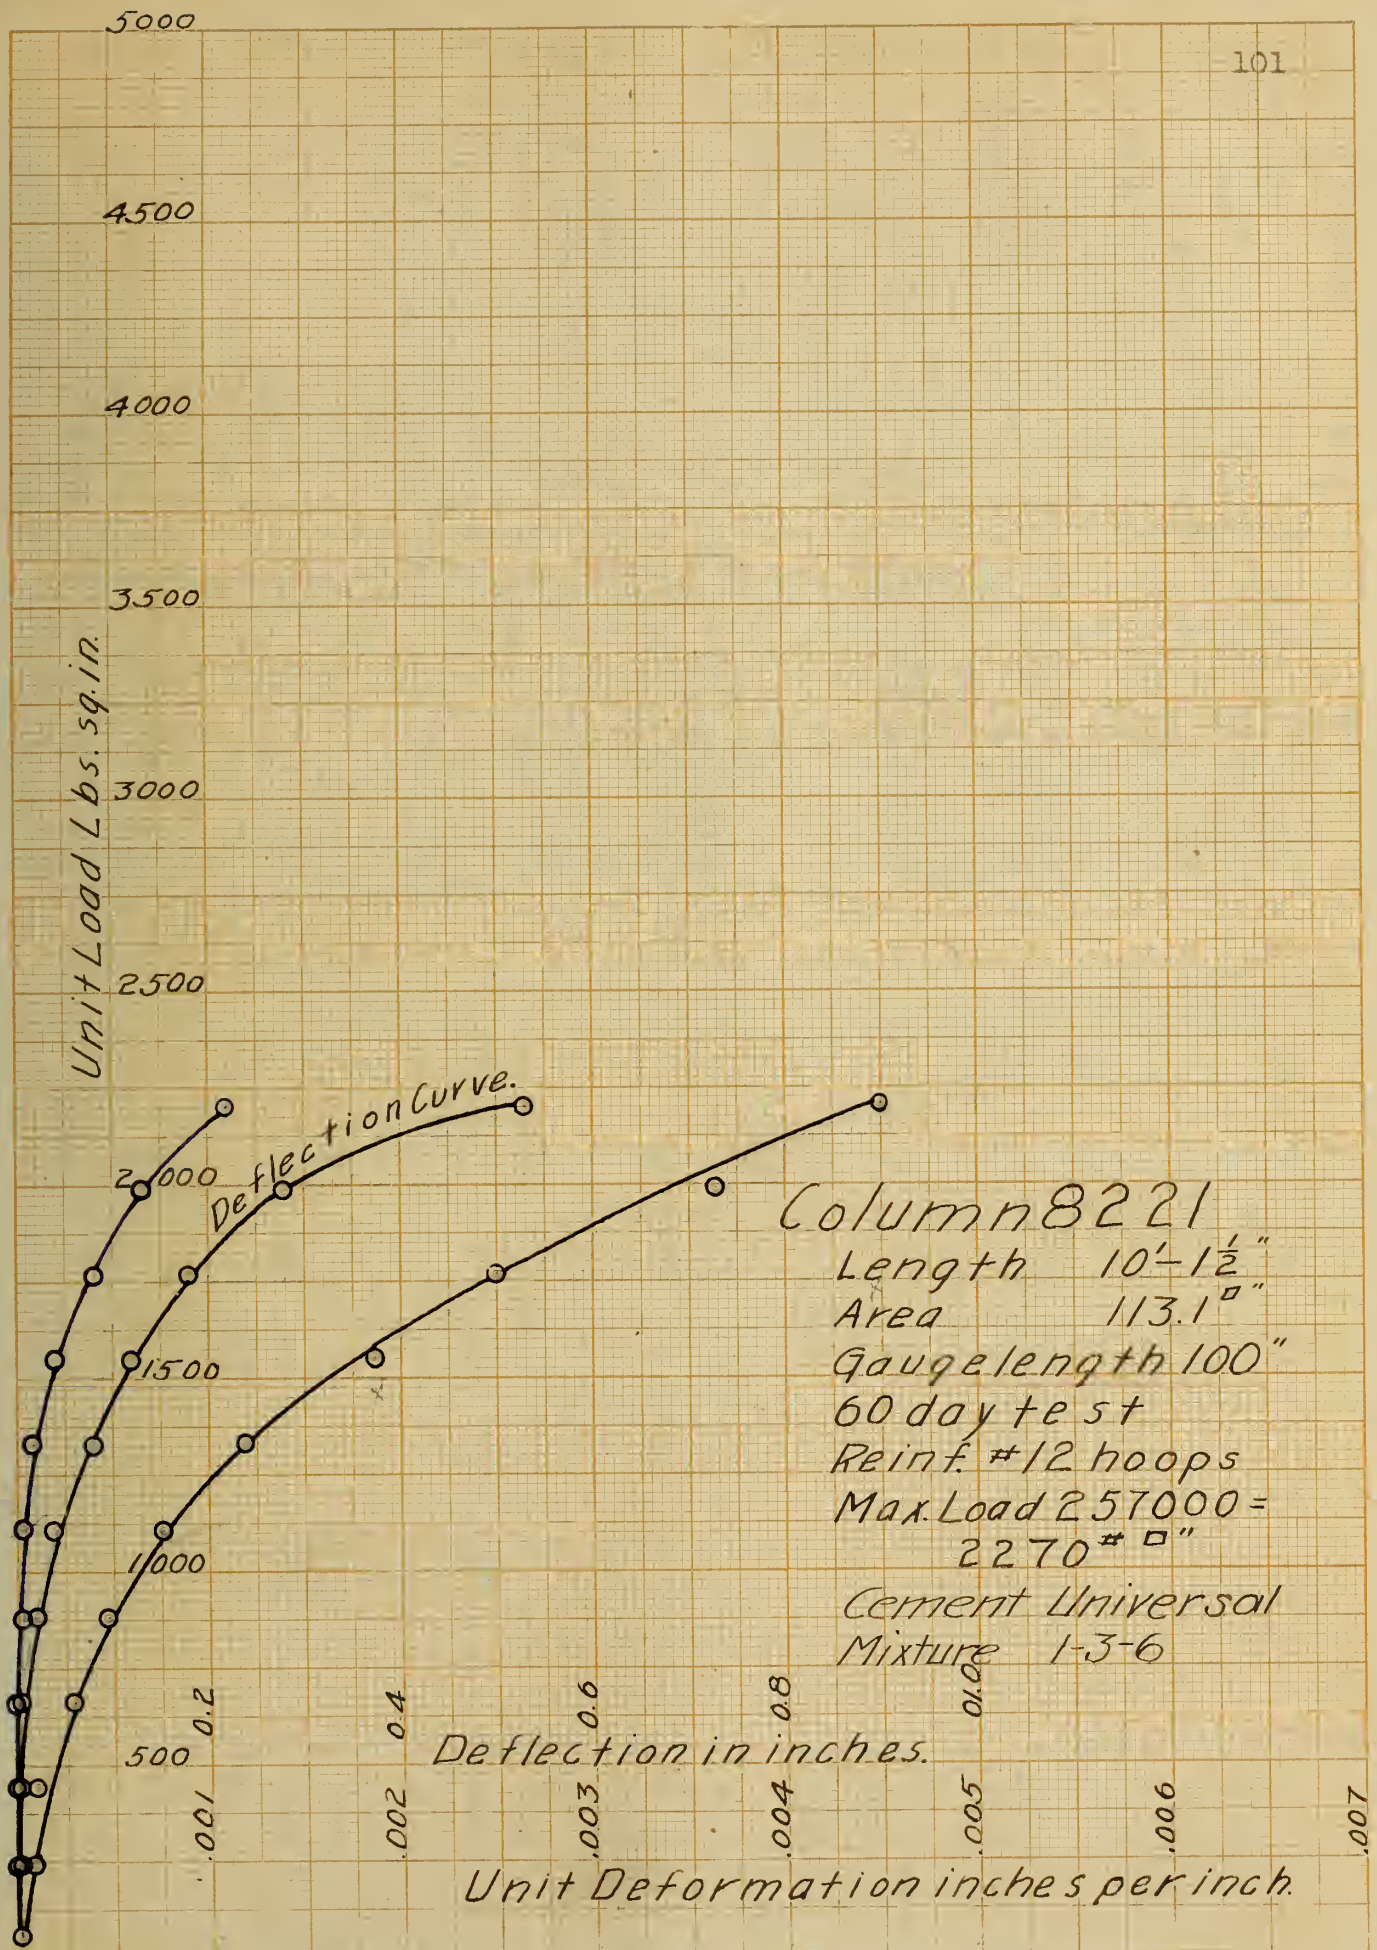 101
5000
4500
4000
3500
3000
2500
2000
1500
1000
500
Unit Load Lbs. sq. in.
Deflection Curve.
Column 8221
Length 10'-1½"
Area 113.1□"
Gauge length 100"
60 day test
Reinf. #12 hoops
Max. Load 257000 =
2270# □"
Cement Universal
Mixture 1-3-6
0.2 0.4 0.6 0.8 01.0
Deflection in inches.
.001 .002 .003 .004 .005 .006 .007
Unit Deformation inches per inch.